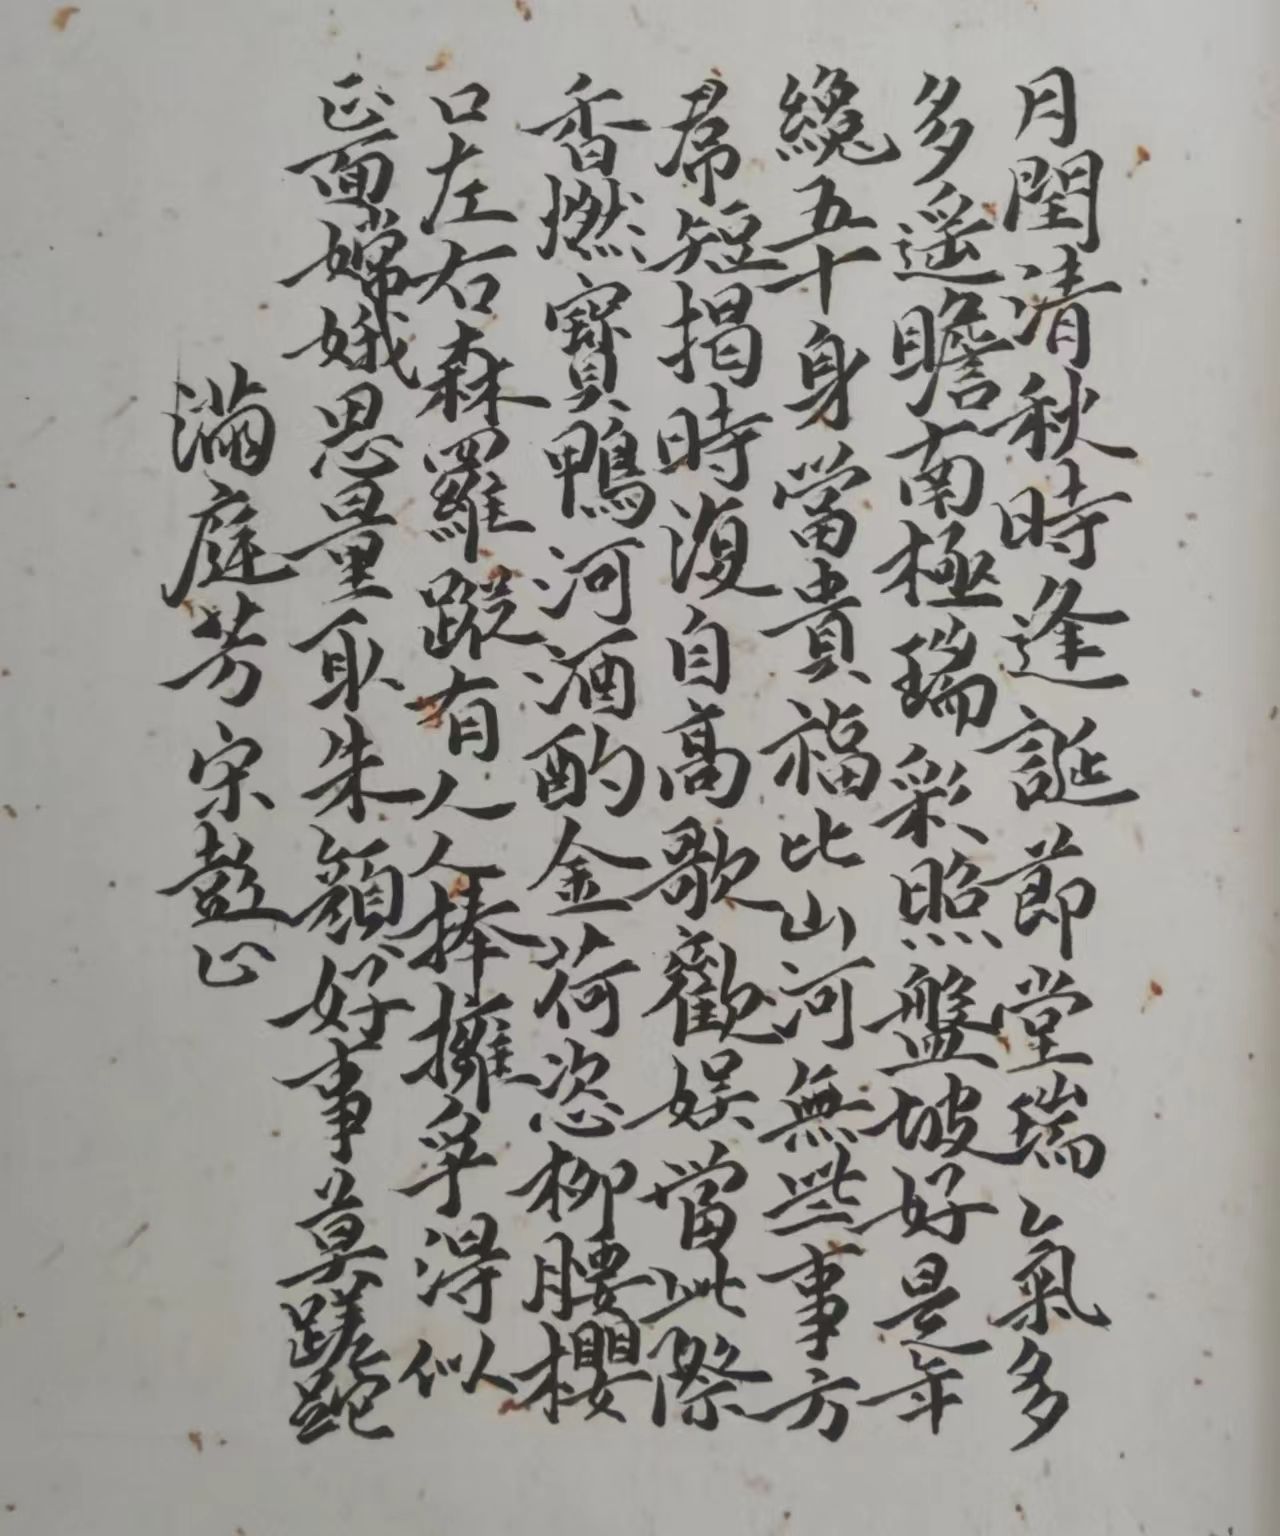 月閏清秋時逢誕節堂瑞氣多
多遥瞻南極瑞彩照盤坡好是年
纔五十身當貴福比山河無些事方
席短揭時復自高歌歡娱當此際
香燃寶鴨河酒酌金荷恣柳腰櫻
口左右森羅蹤有人人捧擁爭得似
正面嫦娥思量取朱顔好事莫蹉跎
滿庭芳宋彭止